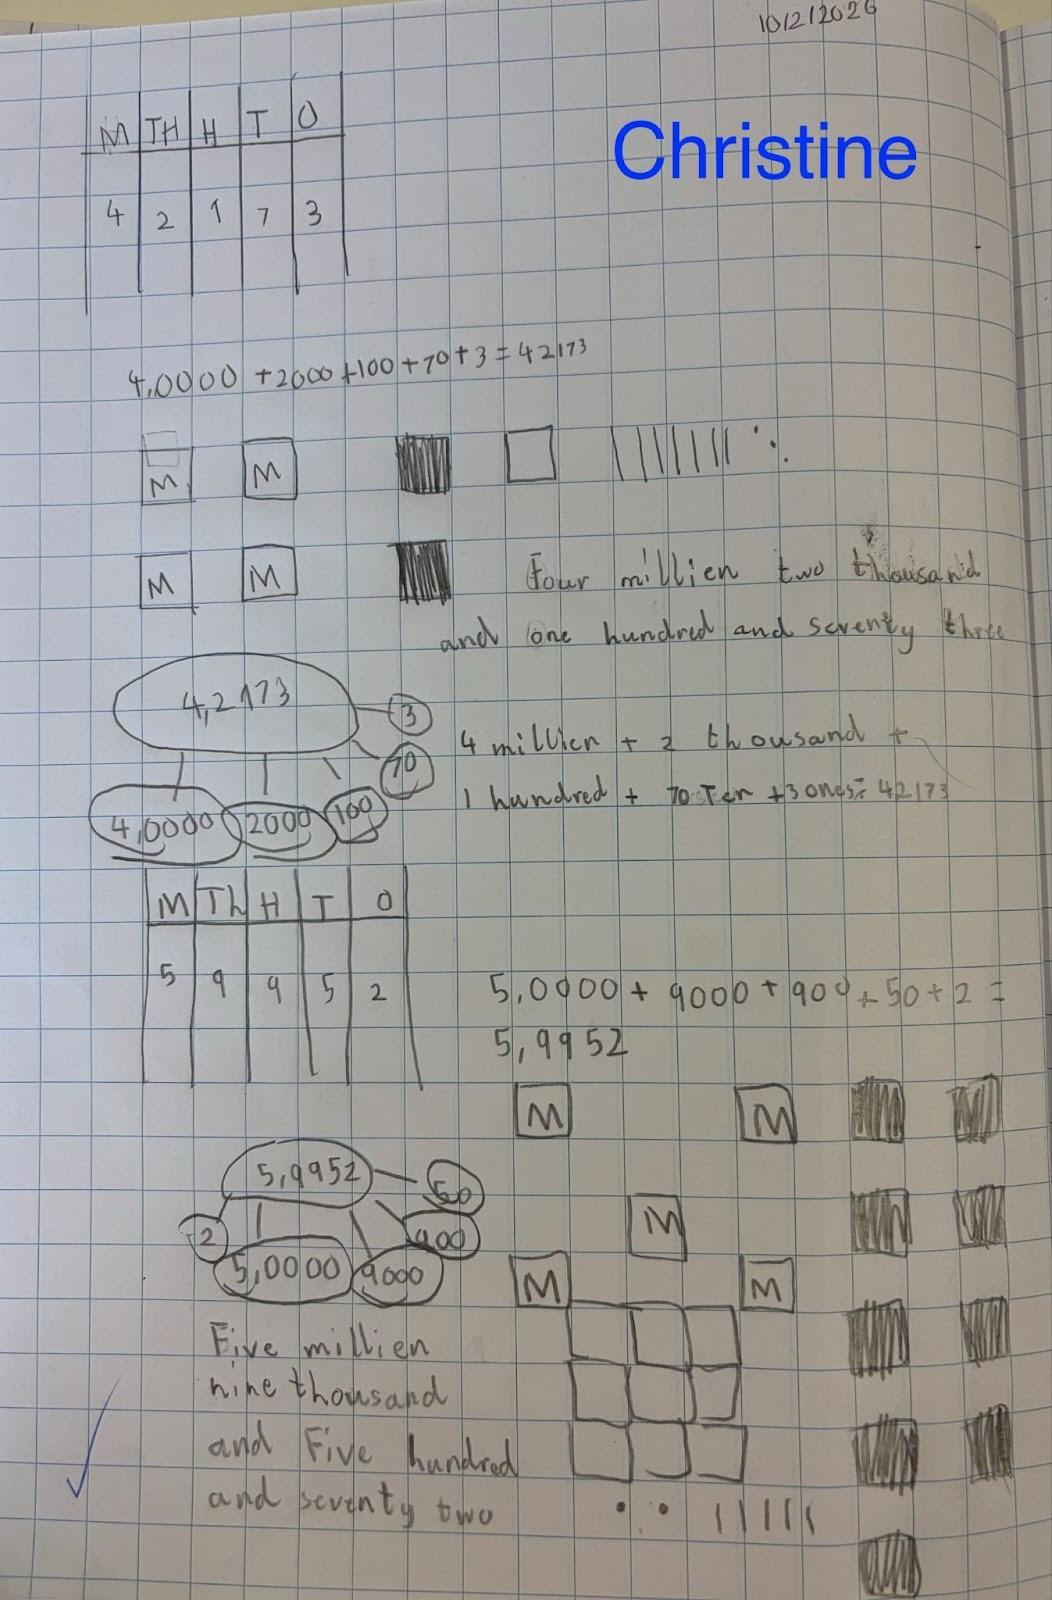 10/2/2026
Christine
M TH H T O
4 2 1 7 3
4,0000 +2000+100+70+3=42173
M M
M M
Four millien two thousand
and one hundred and seventy three
4,2173
3
70
4,0000 2000 100
4 millien + 2 thousand +
1 hundred + 70 Ten +3 ones= 42173
M Th H T O
5 9 9 5 2
5,0000 + 9000 + 900 + 50 + 2 =
5,9952
M M
5,9952
50
2
900
5,0000 9000
M
M M
Five millien
nine thousand
and Five hundred
and seventy two